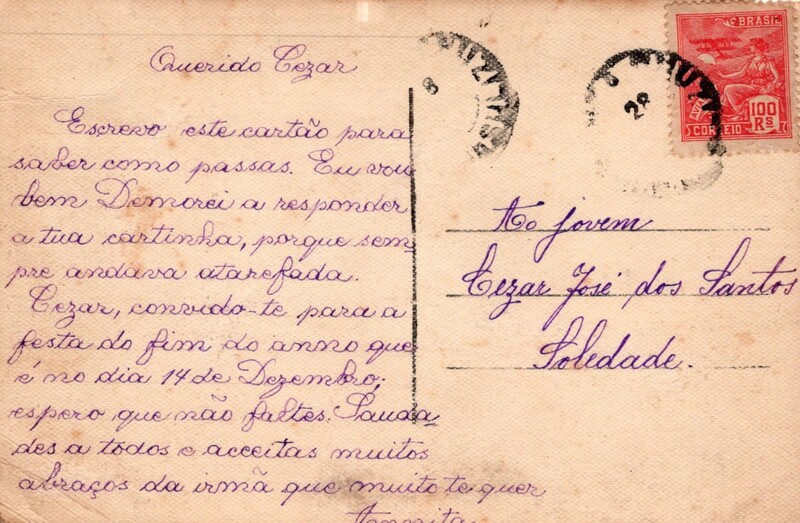 Querido Cezar
Escrevo este cartão para
saber como passas. Eu vou
bem Demorei a responder
a tua cartinha, porque sem
pre andava atarefada.
Cezar, convido-te para a
festa do fim do anno que
é no dia 14 de Dezembro;
espero que não faltes. Sauda-
des a todos e acceitas muitos
abraços da irmã que muito te quer
BRASIL
100
Rs
CORREIO
Ao jovem
Cezar José dos Santos
Soledade.